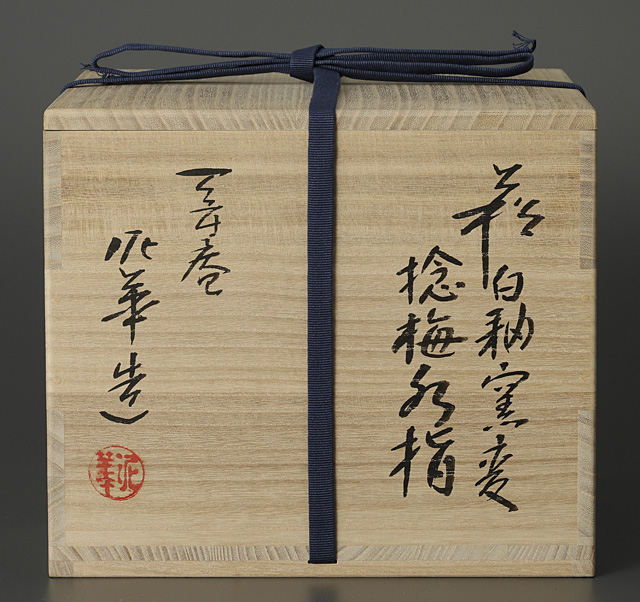 萩白釉窯変
捻梅水指
泥華造
泥華